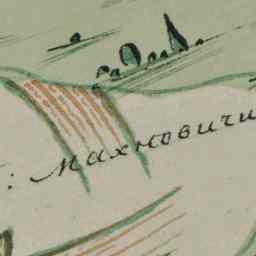 : Махновичи